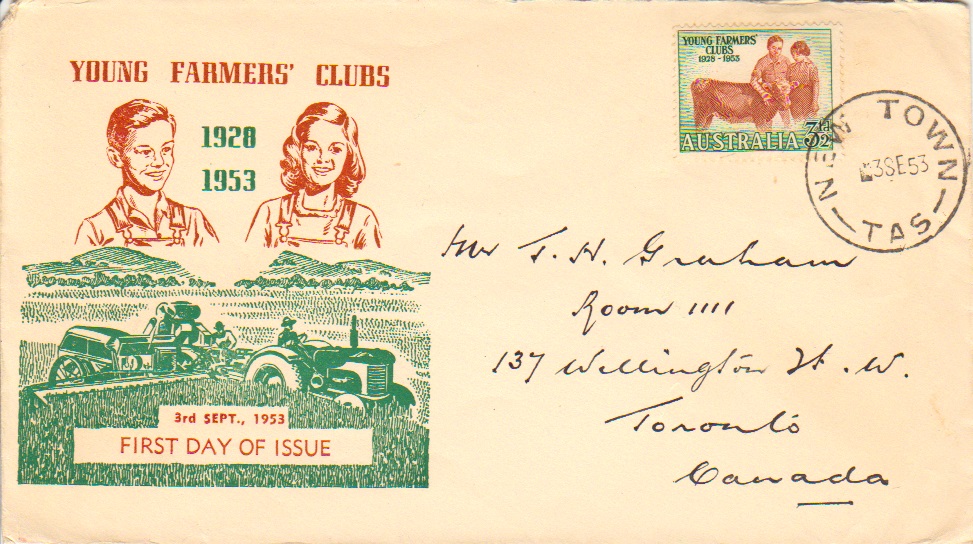 YOUNG FARMERS' CLUBS
1928
1953
3rd SEPT., 1953
FIRST DAY OF ISSUE
YOUNG FARMERS'
CLUBS
1928-1953
AUSTRALIA 3½D
NEW TOWN
3SE53
TAS
Mr T. H. Graham
Room 1111
137 Wellington St. W.
Toronto
Canada